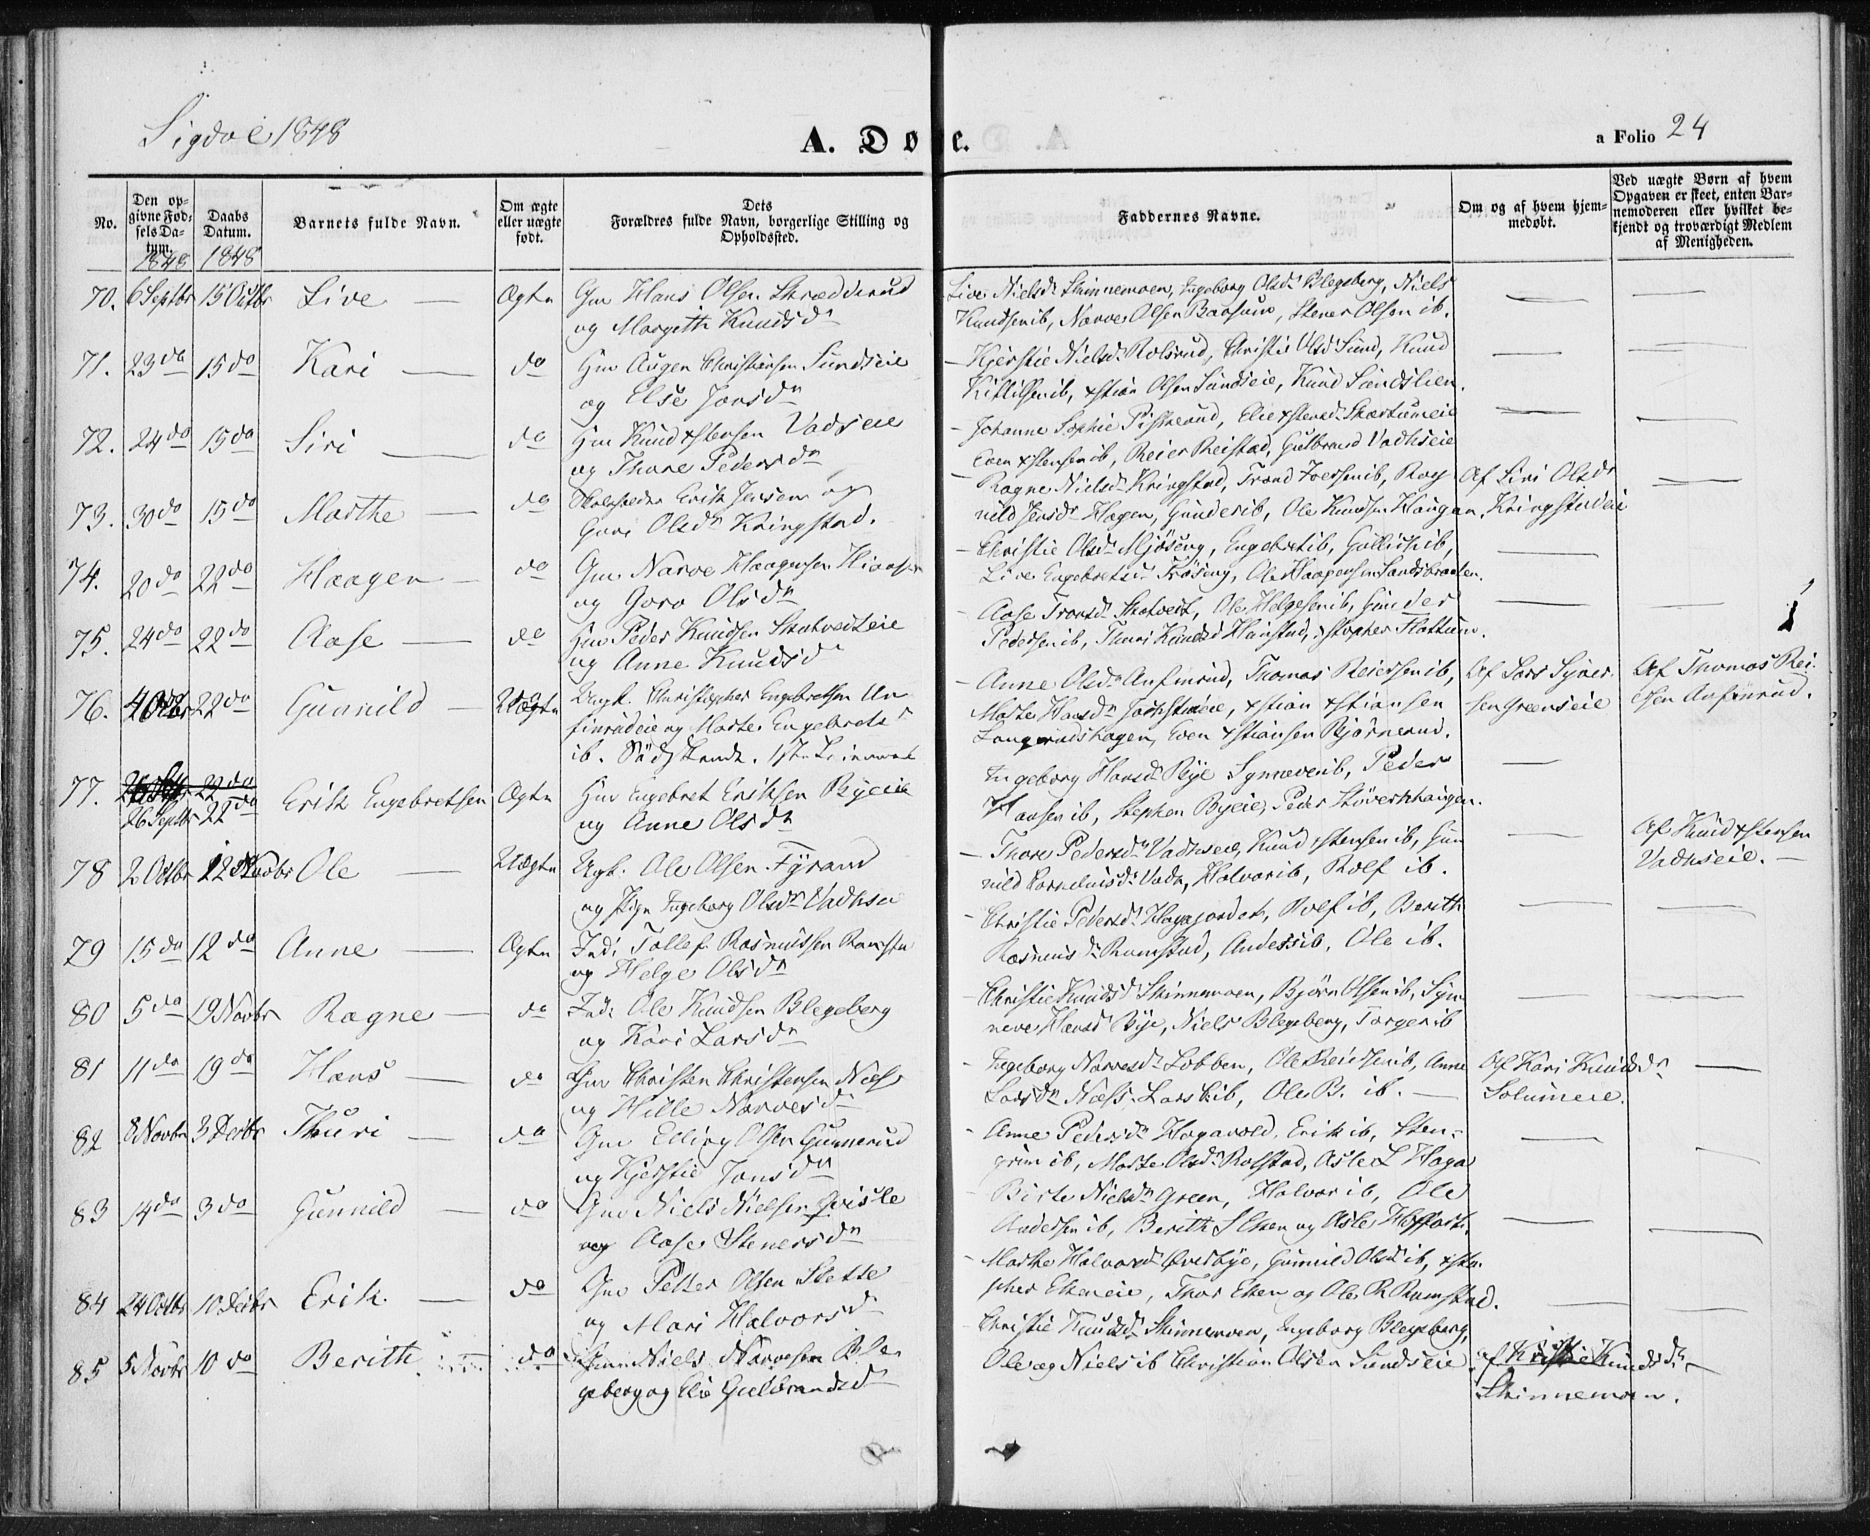 Sigdal 1848
A. Døbte.
a Folio 24
No.
Den opgivne Fødsels Datum. 1848
Daabs Datum. 1848
Barnets fulde Navn.
Om ægte eller uægte født.
Dets Forældres fulde Navn, borgerlige Stilling og Opholdssted.
Faddernes Navne.
Om og af hvem hjemmedøbt.
Ved uægte Børn af hvem Opgaven er skeet, enten Barnemoderen eller hvilket bekjendt og troværdigt Medlem af Menigheden.
70. 6 Septbr 15 Octbr Live — Ægte Gm Hans Olsen Skrædderud
og Margith Knudsdr
Live Nielsdr Skinnemoen, Ingeborg Olsdr Blegeberg, Niels
Knudsen ib, Narve Olsen Baasum, Stener Olsen ib.
71. 23 do 15 do Kari — do Hm Augen Christiansen Sundseie
og Else Jonsdr
Kjerstie Nielsdr Rolsrud, Christie Olsd Sund, Knud
Kittilsen ib, xstian Olsen Sundseie, Knud Sandslien.
72. 24 do 15 do Siri — do Hm Knud xstensen Vadseie
og Thore Pedersdr
Johanne Sophie Pistrerud, Elie xstensdr Skartumeie
Even xstensen ib, Reier Reistad, Gulbrand Vadhseie
73. 30 do 15 do Marthe — do Skoleholder Erik Jensen og
Guri Olsdr Kringstad.
Ragne Nielsdr Kringstad, Trond Iversen ib, Rag
nild Jensdr Hagen, Gunder ib, Ole Knudsen Haugan.
Af Siri Olsdr
Kringstadeie
74. 20 do 22 do Haagen — do Gm Narve Haagensen
og Goro Olsdr
Christie Olsdr Mjøseng, Engebret ib, Gullich ib,
Live Engebretsdr Trøseng, Ole Haagensen Sandsbraaten.
75. 24 do 22 do Aase — do Hm Peder Knudsen Skatvedteie
og Anne Knudsdr
Aase Tronsdr Skatvedt, Ole Helgesen ib, Gunder
Pedersen ib, Thuri Knudsd Hanstad, xstopher Flattum.
76. 4 Octbr 22 do Gunnild — Uægte Ungk. Christopher Engebretsen An
finrudeie og Marte Engebretsdr
ib.
Anne Olsdr Anfinrud, Thomas Reiersen ib,
Marte Hansdr, xstian xstiansen
Langerudshagen, Even xstiansen Bjørnerud.
Af Lars Syver
sen Greenseie
Af Thomas Rei
ersen Anfinrud.
77. 22 do
26 Septbr 22 do Erik Engebretsen Ægte Hm Engebret Eriksen Byeie
og Anne Olsdr
Ingeborg Hansdr Bye, Synneve ib, Peder
Hansen ib, Stephen Byeie, Peder Støverkhaugen.
78 2 Octbr 12 Novbr Ole — Uægte Ugk. Ole Olsen Fyrand
og Pige Ingeborg Olsdr Vadhseie
Thore Pedersdr Vadhseie, Knud xstensen ib, Gun
nild Corneliusdr Vadh, Halvor ib, Rolf ib.
Af Knud xstensen
Vadhseie. —
79 15 do 12 do Anne — Ægte Ind: Tollef Rasmussen Ramstad
og Helge Olsdr
Christie Pedersdr Hagajordet, Rolf ib, Berith
Rasmusdr Ramstad, Anders ib, Ole ib.
80 5 do 19 Novbr Ragne — do Ind: Ole Knudsen Blegeberg
og Kari Larsdr
Christie Knudsd Skinnemoen, Bjørn Olsen ib, Syn
neve Hansd Bye, Niels Blegeberg, Torger ib
81 11 do 19 do Hans — do Gm Christen Christensen Næss
og Hille Narvesdr
Ingeborg Narvesdr Lobben, Ole ib, Anne
Larsdr Næss, Lars ib, Ole B. ib. —
Af Kari Knudsdr
Solumeie.
82 8 Novbr 3 Decbr Thuri — do Gm Elling Olsen Gunnerud
og Kjerstie Jonsdr
Anne Pedersdr Hagavold, Erik ib, Sten-
grim ib, Marte Olsdr Rolstad, Asle L Haga
83 14 do 3 do Gunnild — do Gm Niels Nielsen Qvisle
og Aase Stenersdr
Birte Nielsdr Green, Halvor ib, Ole
Andersen ib, Berith S Eken og Asle Hoffart.
84 24 Octbr 10 Decbr Erik — do Gm Petter Olsen Slette
og Mari Halvorsdr
Marthe Halvorsdr Øvrebye, Gunnild Olsd ib, xsto
pher Ekeneie, Thor Eken og Ole R Ramstad.
85 5 Novbr 10 do Berith — do Gm Niels Narvesen Ble
geberg og Elie Gulbrandsdr
Christie Knudsdr Skinnemoen, Ingeborg Blegeberg,
Ole og Niels ib Christian Olsen Sundseie
af Kristie Knudsdr
Skinnemoen.